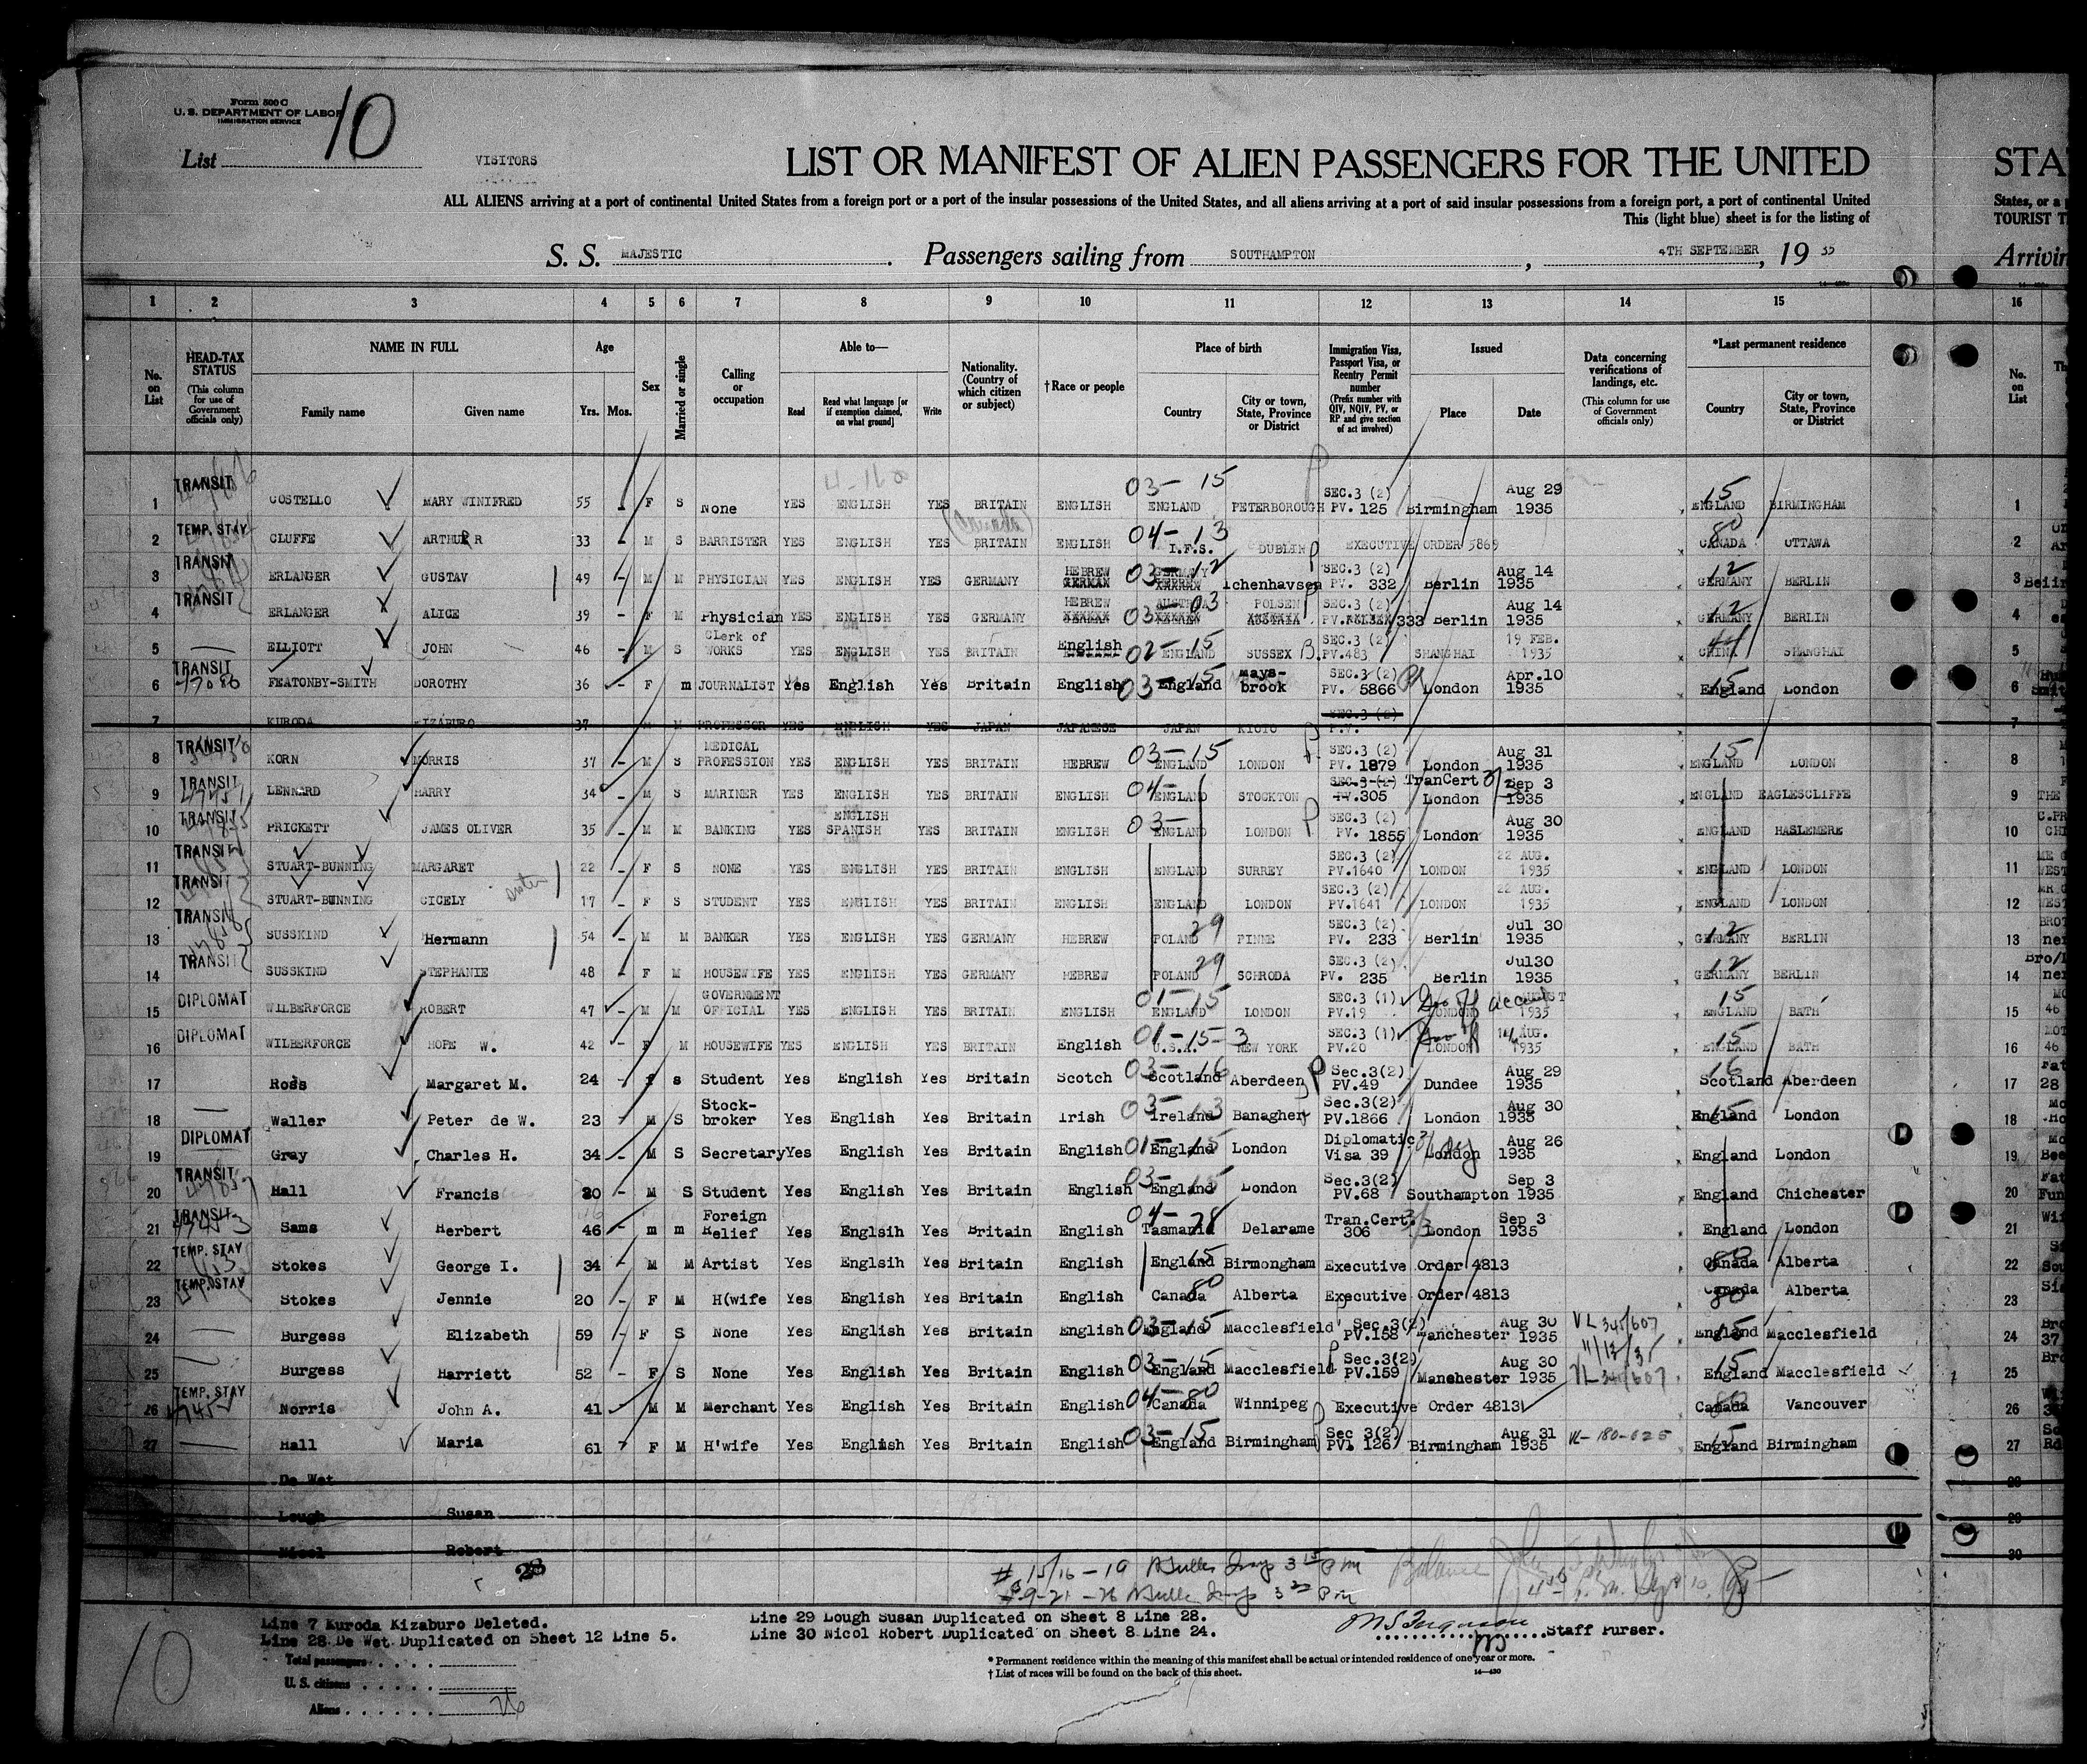 Form 500 C
U. S. DEPARTMENT OF LABOR
IMMIGRATION SERVICE
List 10
VISITORS
LIST OR MANIFEST OF ALIEN PASSENGERS FOR THE UNITED
STA
ALL ALIENS arriving at a port of continental United States from a foreign port or a port of the insular possessions of the United States, and all aliens arriving at a port of said insular possessions from a foreign port, a port of continental United
States, or a
This (light blue) sheet is for the listing of
TOURIST T
S. S. MAJESTIC. Passengers sailing from SOUTHAMPTON, 4TH SEPTEMBER, 19 35
Arrivin
1 2 3 4 5 6 7 8 9 10 11 12 13 14 15 16
No. on List
HEAD-TAX STATUS (This column for use of Government officials only)
NAME IN FULL Family name Given name
Age Yrs. Mos.
Sex
Married or single
Calling or occupation
Able to— Read Read what language [or if exemption claimed, on what ground] Write
Nationality. (Country of which citizen or subject)
† Race or people
Place of birth Country City or town, State, Province or District
Immigration Visa, Passport Visa, or Reentry Permit number (Prefix number with QIV, NQIV, PV, or RP and give section of act involved)
Issued Place Date
Data concerning verifications of landings, etc. (This column for use of Government officials only)
*Last permanent residence Country City or town, State, Province or District
No. on List
1 TRANSIT COSTELLO MARY WINIFRED 55 F S None YES ENGLISH YES BRITAIN ENGLISH 03-15 ENGLAND PETERBOROUGH SEC.3 (2) PV. 125 Birmingham Aug 29 1935 15 ENGLAND BIRMINGHAM 1
2 TEMP. STAY CLUFFE ARTHUR R 33 M S BARRISTER YES ENGLISH YES (Canada) BRITAIN ENGLISH 04-13 I.F.S. DUBLIN EXECUTIVE ORDER 5869 80 CANADA OTTAWA 2
3 TRANSIT ERLANGER GUSTAV 49 M M PHYSICIAN YES ENGLISH YES GERMANY HEBREW GERMAN 03-12 GERMANY Ichenhausen SEC.3 (2) PV. 332 Berlin Aug 14 1935 12 GERMANY BERLIN 3
4 TRANSIT ERLANGER ALICE 39 F M Physician YES ENGLISH YES GERMANY HEBREW 03-03 AUSTRIA POLSEN SEC.3 (2) PV. 333 Berlin Aug 14 1935 12 GERMANY BERLIN 4
5 — ELLIOTT JOHN 46 M S CLerk of WORKS YES ENGLISH YES BRITAIN English 02-15 ENGLAND SUSSEX SEC.3 (2) PV.483 SHANGHAI 19 FEB. 1935 CHINA SHANGHAI 5
6 TRANSIT 47086 FEATONBY-SMITH DOROTHY 36 F m JOURNALIST Yes English Yes Britain English 03-15 England mays-brook SEC.3 (2) PV. 5866 London Apr.10 1935 15 England London 6
7 KURODA KIZABURO 37 M M PROFESSOR YES ENGLISH YES JAPAN JAPANESE JAPAN KIOTO SEC.3 (2) P.V. 7
8 TRANSIT KORN MORRIS 37 M S MEDICAL PROFESSION YES ENGLISH YES BRITAIN HEBREW 03-15 ENGLAND LONDON SEC.3 (2) PV. 1879 London Aug 31 1935 15 ENGLAND LONDON 8
9 TRANSIT 47451 LENNARD HARRY 34 M S MARINER YES ENGLISH YES BRITAIN ENGLISH 04- ENGLAND STOCKTON SEC.3-(2) TranCert PV.305 London Sep 3 1935 ENGLAND EAGLESCLIFFE 9
10 TRANSIT PRICKETT JAMES OLIVER 35 M M BANKING YES ENGLISH SPANISH YES BRITAIN ENGLISH 03- ENGLAND LONDON SEC.3 (2) PV. 1855 London Aug 30 1935 ENGLAND HASLEMERE 10
11 TRANSIT STUART-BUNNING MARGARET 22 F S NONE YES ENGLISH YES BRITAIN ENGLISH ENGLAND SURREY SEC.3 (2) PV.1640 LONDON 22 AUG. 1935 ENGLAND LONDON 11
12 TRANSIT STUART-BUNNING CICELY sister 17 F S STUDENT YES ENGLISH YES BRITAIN ENGLISH ENGLAND LONDON SEC.3 (2) PV.1641 LONDON 22 AUG. 1935 ENGLAND LONDON 12
13 TRANSIT SUSSKIND Hermann 54 M M BANKER YES ENGLISH YES GERMANY HEBREW 29 POLAND PINNE SEC.3 (2) PV. 233 Berlin Jul 30 1935 12 GERMANY BERLIN 13
14 TRANSIT SUSSKIND STEPHANIE 48 F M HOUSEWIFE YES ENGLISH YES GERMANY HEBREW 29 POLAND SCHRODA SEC.3 (2) PV. 235 Berlin Jul30 1935 12 GERMANY BERLIN 14
15 DIPLOMAT WILBERFORCE ROBERT 47 M M GOVERNMENT OFFICIAL YES ENGLISH YES BRITAIN ENGLISH 01-15 ENGLAND LONDON SEC.3 (1) PV.19 LONDON 1935 15 ENGLAND BATH 15
16 DIPLOMAT WILBERFORCE HOPE W. 42 F M HOUSEWIFE YES ENGLISH YES BRITAIN English 01-15-3 U.S.A. NEW YORK SEC.3 (1) PV.20 LONDON AUG. 1935 15 ENGLAND BATH 16
17 Ross Margaret M. 24 f s Student Yes English Yes Britain Scotch 03-16 Scotland Aberdeen Sec.3(2) PV.49 Dundee Aug 29 1935 16 Scotland Aberdeen 17
18 — Waller Peter de W. 23 M S Stock-broker Yes English Yes Britain Irish 03-13 Ireland Banagher Sec.3(2) PV.1866 London Aug 30 1935 15 England London 18
19 DIPLOMAT Gray Charles H. 34 M S Secretary Yes English Yes Britain English 01-15 England London Diplomatic Visa 39 London Aug 26 1935 England London 19
20 TRANSIT Hall Francis 20 M S Student Yes English Yes Britain English 03-15 England London Sec.3(2) PV.68 Southampton Sep 3 1935 England Chichester 20
21 TRANSIT 47453 Sams Herbert 46 m m Foreign Relief Yes Englsih Yes Britain English 04-28 Tasmania Delarame Tran.Cert. 306 London Sep 3 1935 England London 21
22 TEMP. STAY Stokes George I. 34 M M Artist Yes Englsih Yes Britain English 15 England Birmongham Executive Order 4813 80 Canada Alberta 22
23 TEMP. STAY Stokes Jennie 20 F M H(wife Yes English Yes Britain English 80 Canada Alberta Executive Order 4813 80 Canada Alberta 23
24 — Burgess Elizabeth 59 F S None Yes English Yes Britain English 03-15 England Macclesfield Sec.3(2) PV.158 Manchester Aug 30 1935 VL 345/607 15 England Macclesfield 24
25 Burgess Harriett 52 F S None Yes English Yes Britain English 03-15 England Macclesfield Sec.3(2) PV.159 Manchester Aug 30 1935 11/13/35 VL 345/607 15 England Macclesfield 25
26 TEMP. STAY Norris John A. 41 M M Merchant Yes English Yes Britain English 04-80 Canada Winnipeg Executive Order 4813 80 Canada Vancouver 26
27 — Hall Maria 61 F M H'wife Yes English Yes Britain English 03-15 England Birmingham Sec 3(2) PV. 126 Birmingham Aug 31 1935 VL-180-025 15 England Birmingham 27
De Wet 28
Lough Susan 29
Nicol Robert 30
# 15/16 - 19
9-21-26
Line 7 Kuroda Kizaburo Deleted.
Line 28 De Wet Duplicated on Sheet 12 Line 5.
Line 29 Lough Susan Duplicated on Sheet 8 Line 28.
Line 30 Nicol Robert Duplicated on Sheet 8 Line 24.
Staff Purser.
Total passengers
U. S. citizens
Aliens 26
* Permanent residence within the meaning of this manifest shall be actual or intended residence of one year or more.
† List of races will be found on the back of this sheet.
14—430
10